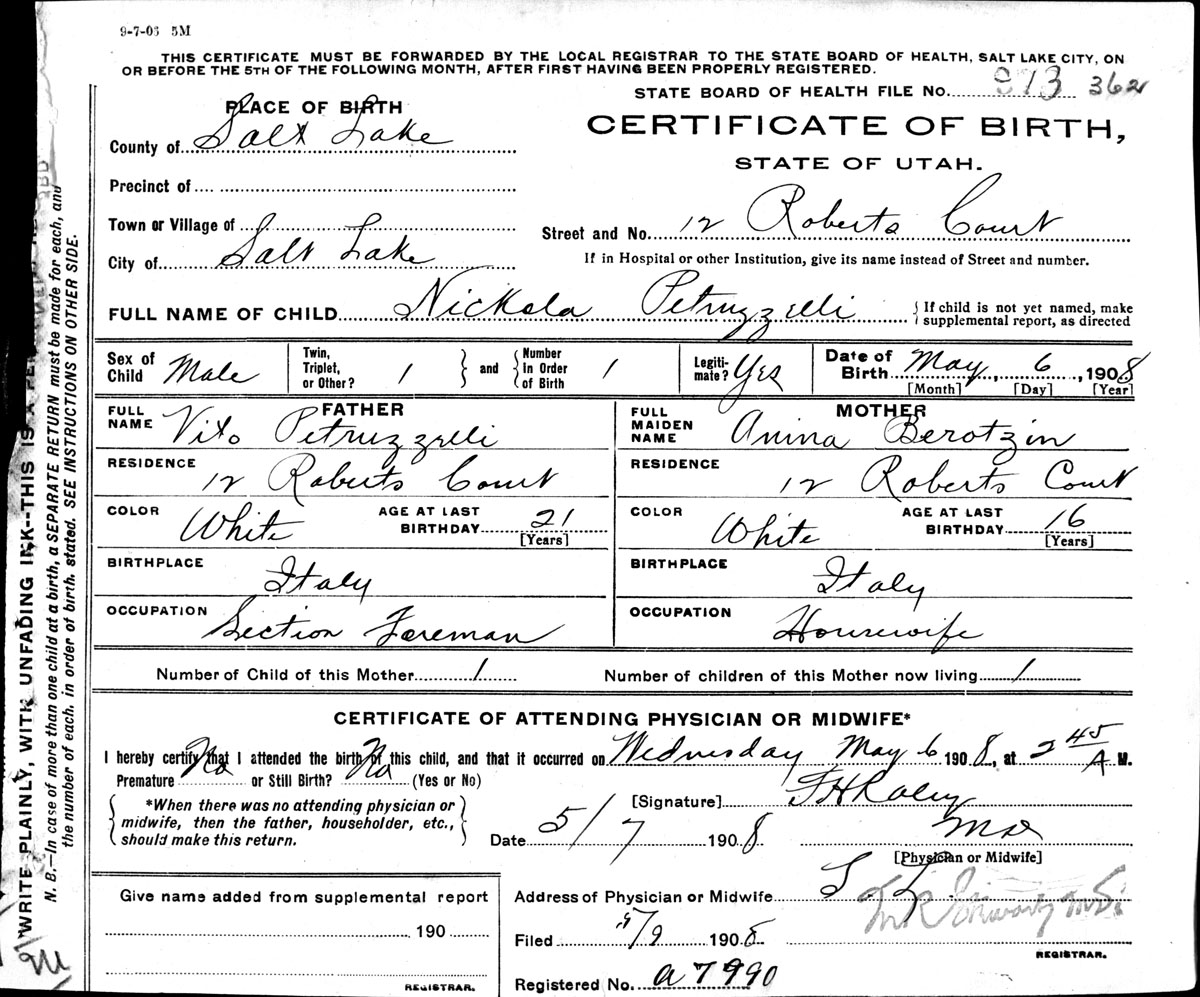 9-7-05 5M
THIS CERTIFICATE MUST BE FORWARDED BY THE LOCAL REGISTRAR TO THE STATE BOARD OF HEALTH, SALT LAKE CITY, ON
OR BEFORE THE 5TH OF THE FOLLOWING MONTH, AFTER FIRST HAVING BEEN PROPERLY REGISTERED.
STATE BOARD OF HEALTH FILE No. 913 362
PLACE OF BIRTH
CERTIFICATE OF BIRTH,
STATE OF UTAH.
County of Salt Lake
Precinct of
Town or Village of
Street and No. 12 Roberts Court
City of Salt Lake
If in Hospital or other Institution, give its name instead of Street and number.
FULL NAME OF CHILD Nickola Petruzzelli
{ If child is not yet named, make
supplemental report, as directed
Sex of Child Male
Twin, Triplet, or Other? 1
and Number In Order of Birth 1
Legitimate? Yes
Date of Birth May 6, 1908
[Month] [Day] [Year]
FATHER
FULL NAME Vito Petruzzelli
RESIDENCE 12 Roberts Court
COLOR White AGE AT LAST BIRTHDAY 21
[Years]
BIRTHPLACE Italy
OCCUPATION Section Foreman
MOTHER
FULL MAIDEN NAME Anina Berotzin
RESIDENCE 12 Roberts Court
COLOR White AGE AT LAST BIRTHDAY 16
[Years]
BIRTHPLACE Italy
OCCUPATION Housewife
Number of Child of this Mother 1
Number of children of this Mother now living 1
CERTIFICATE OF ATTENDING PHYSICIAN OR MIDWIFE*
I hereby certify that I attended the birth of this child, and that it occurred on Wednesday May 6 1908, at 2 45 A M.
Premature No or Still Birth? No (Yes or No)
*When there was no attending physician or
midwife, then the father, householder, etc.,
should make this return.
[Signature]
Date 5/7 1908
MD
[Physician or Midwife]
Give name added from supplemental report
190
REGISTRAR.
Address of Physician or Midwife S L
Filed 5/9 1908
REGISTRAR.
Registered No. a7990
WRITE PLAINLY, WITH UNFADING INK--THIS IS A
N. B.—In case of more than one child at a birth, a SEPARATE RETURN must be made for each, and
the number of each, in order of birth, stated. SEE INSTRUCTIONS ON OTHER SIDE.